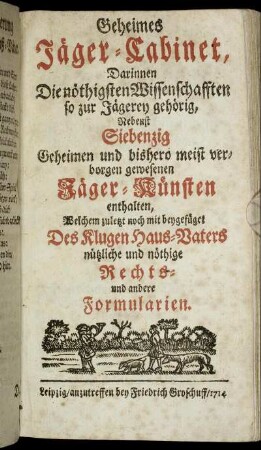 Geheimes
Jäger-Cabinet,
Darinnen
Die nöthigsten Wissenschafften
so zur Jägerey gehörig,
Nebenst
Siebenzig
Geheimen und bishero meist ver-
borgen gewesenen
Jäger-Künsten
enthalten,
Welchem zuletzt noch mit beygefüget
Des Klugen Haus-Vaters
nützliche und nöthige
Rechts-
und andere
Formularien.
Leipzig/anzutreffen bey Friedrich Groschuff/1714